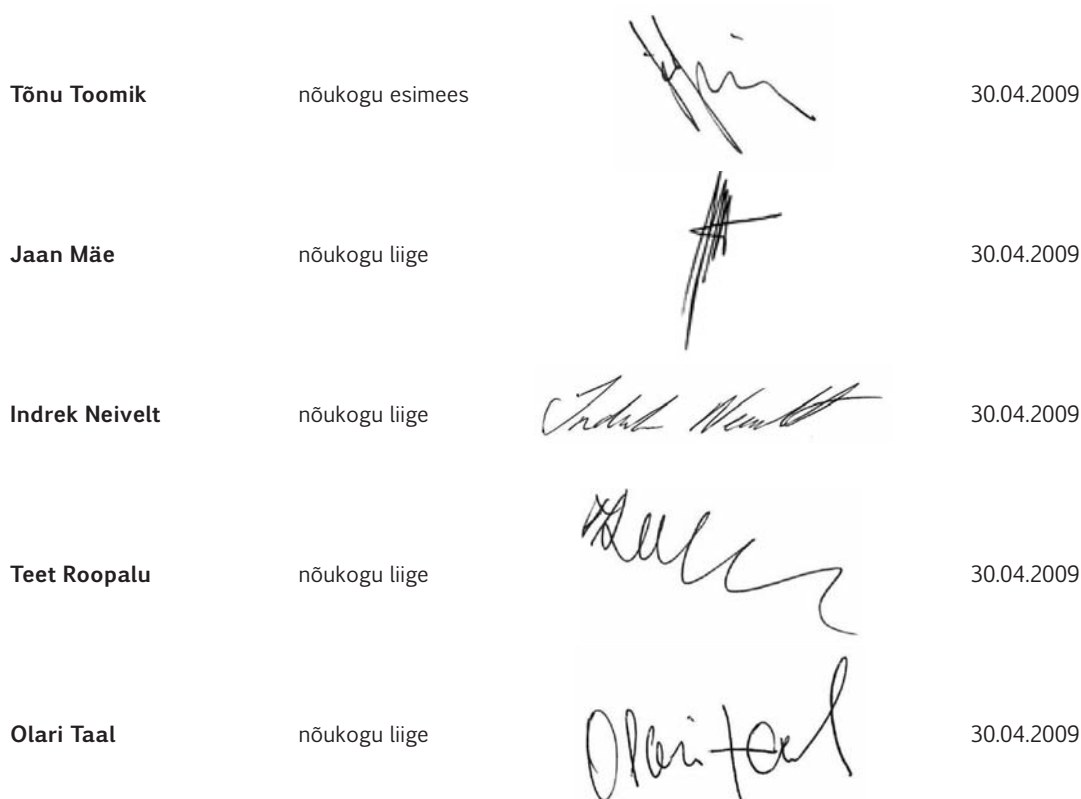 Tõnu Toomik nõukogu esimees 30.04.2009
Jaan Mäe nõukogu liige 30.04.2009
Indrek Neivelt nõukogu liige Indrek Neivelt 30.04.2009
Teet Roopalu nõukogu liige 30.04.2009
Olari Taal nõukogu liige Olari Taal 30.04.2009